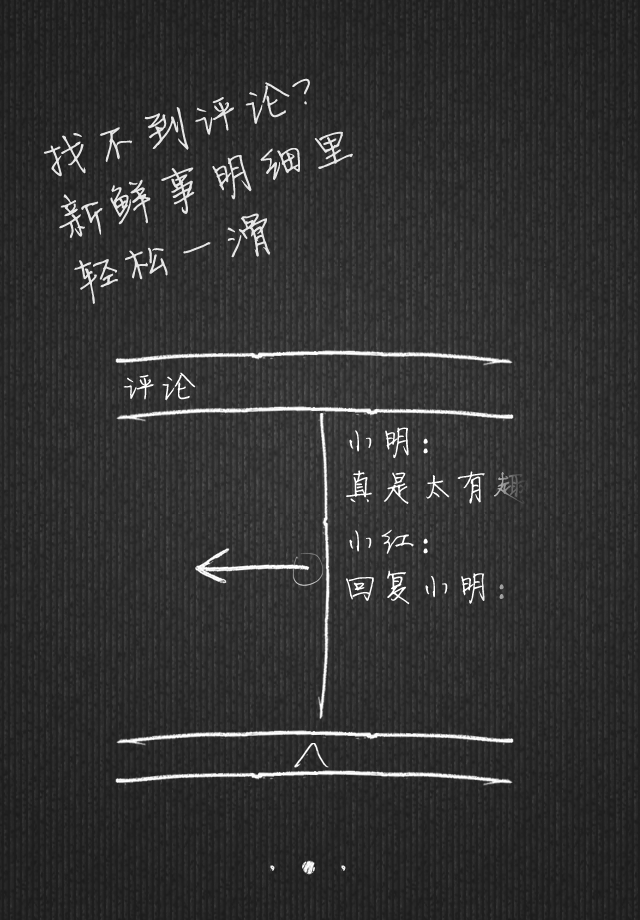 找不到评论?
新鲜事明细里
轻松一滑
评论
小明:
真是太有趣
小红:
回复小明: